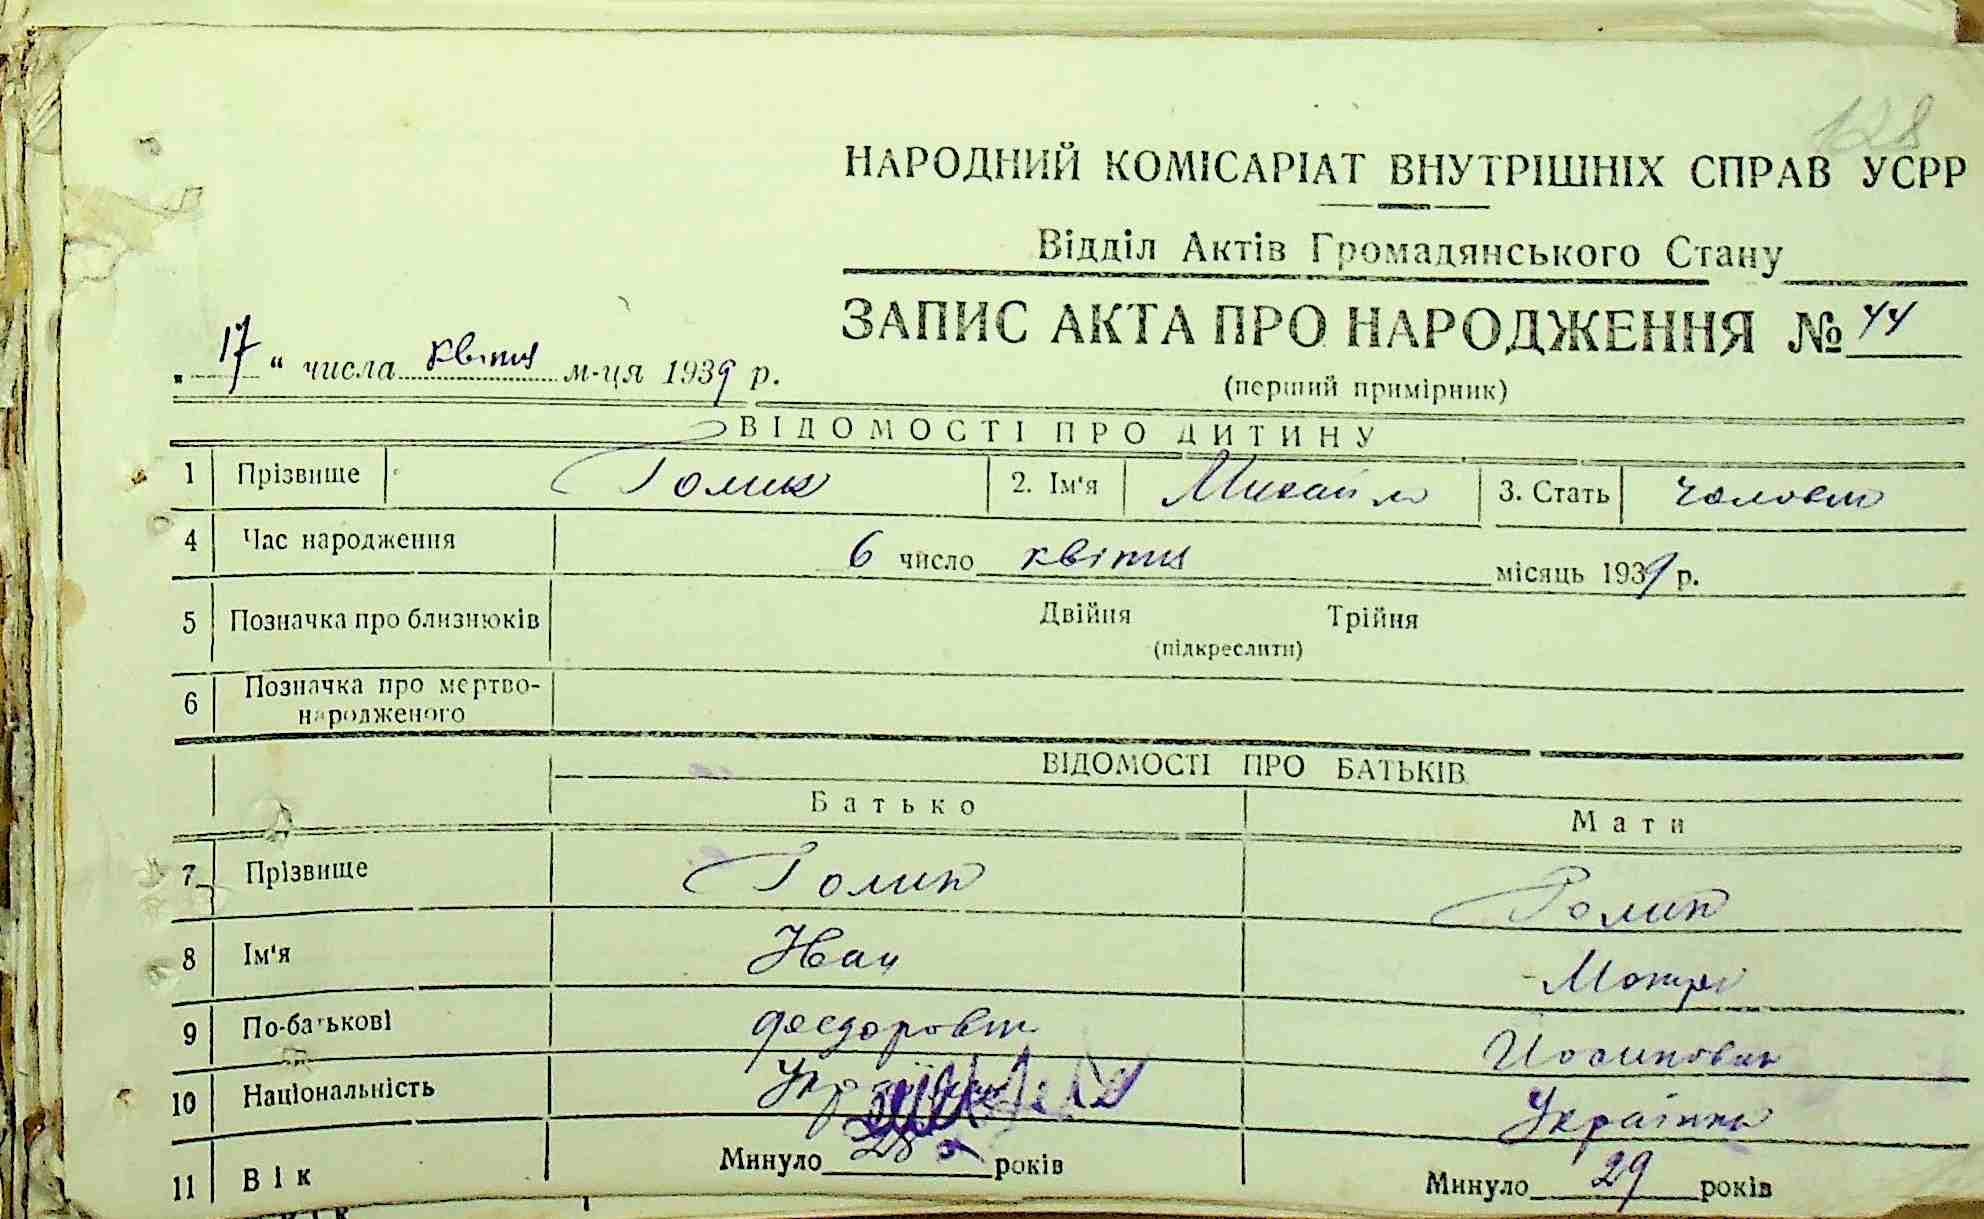 128
НАРОДНИЙ КОМІСАРІАТ ВНУТРІШНІХ СПРАВ УСРР
Відділ Актів Громадянського Стану
ЗАПИС АКТА ПРО НАРОДЖЕННЯ № 44
„17“ числа квітня м-ця 1939 р.
(перший примірник)
ВІДОМОСТІ ПРО ДИТИНУ
1 Прізвище Голик 2. Ім'я Михайло 3. Стать
4 Час народження 6 число квітня місяць 1939 р.
5 Позначка про близнюків Двійня Трійня
(підкреслити)
6 Позначка про мертво-
народженого
ВІДОМОСТІ ПРО БАТЬКІВ
Батько Мати
7 Прізвище Голик Голик
8 Ім'я Иван Мотря
9 По-батькові Феедорович Йосиповна
10 Національність Українка
11 Вік Минуло 28 років Минуло 29 років